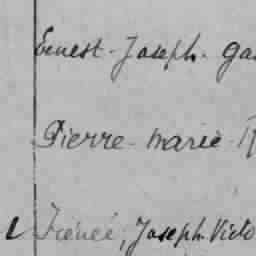 Ernest-Joseph-Ga
Pierre-marie-
Irénée, Joseph Victo